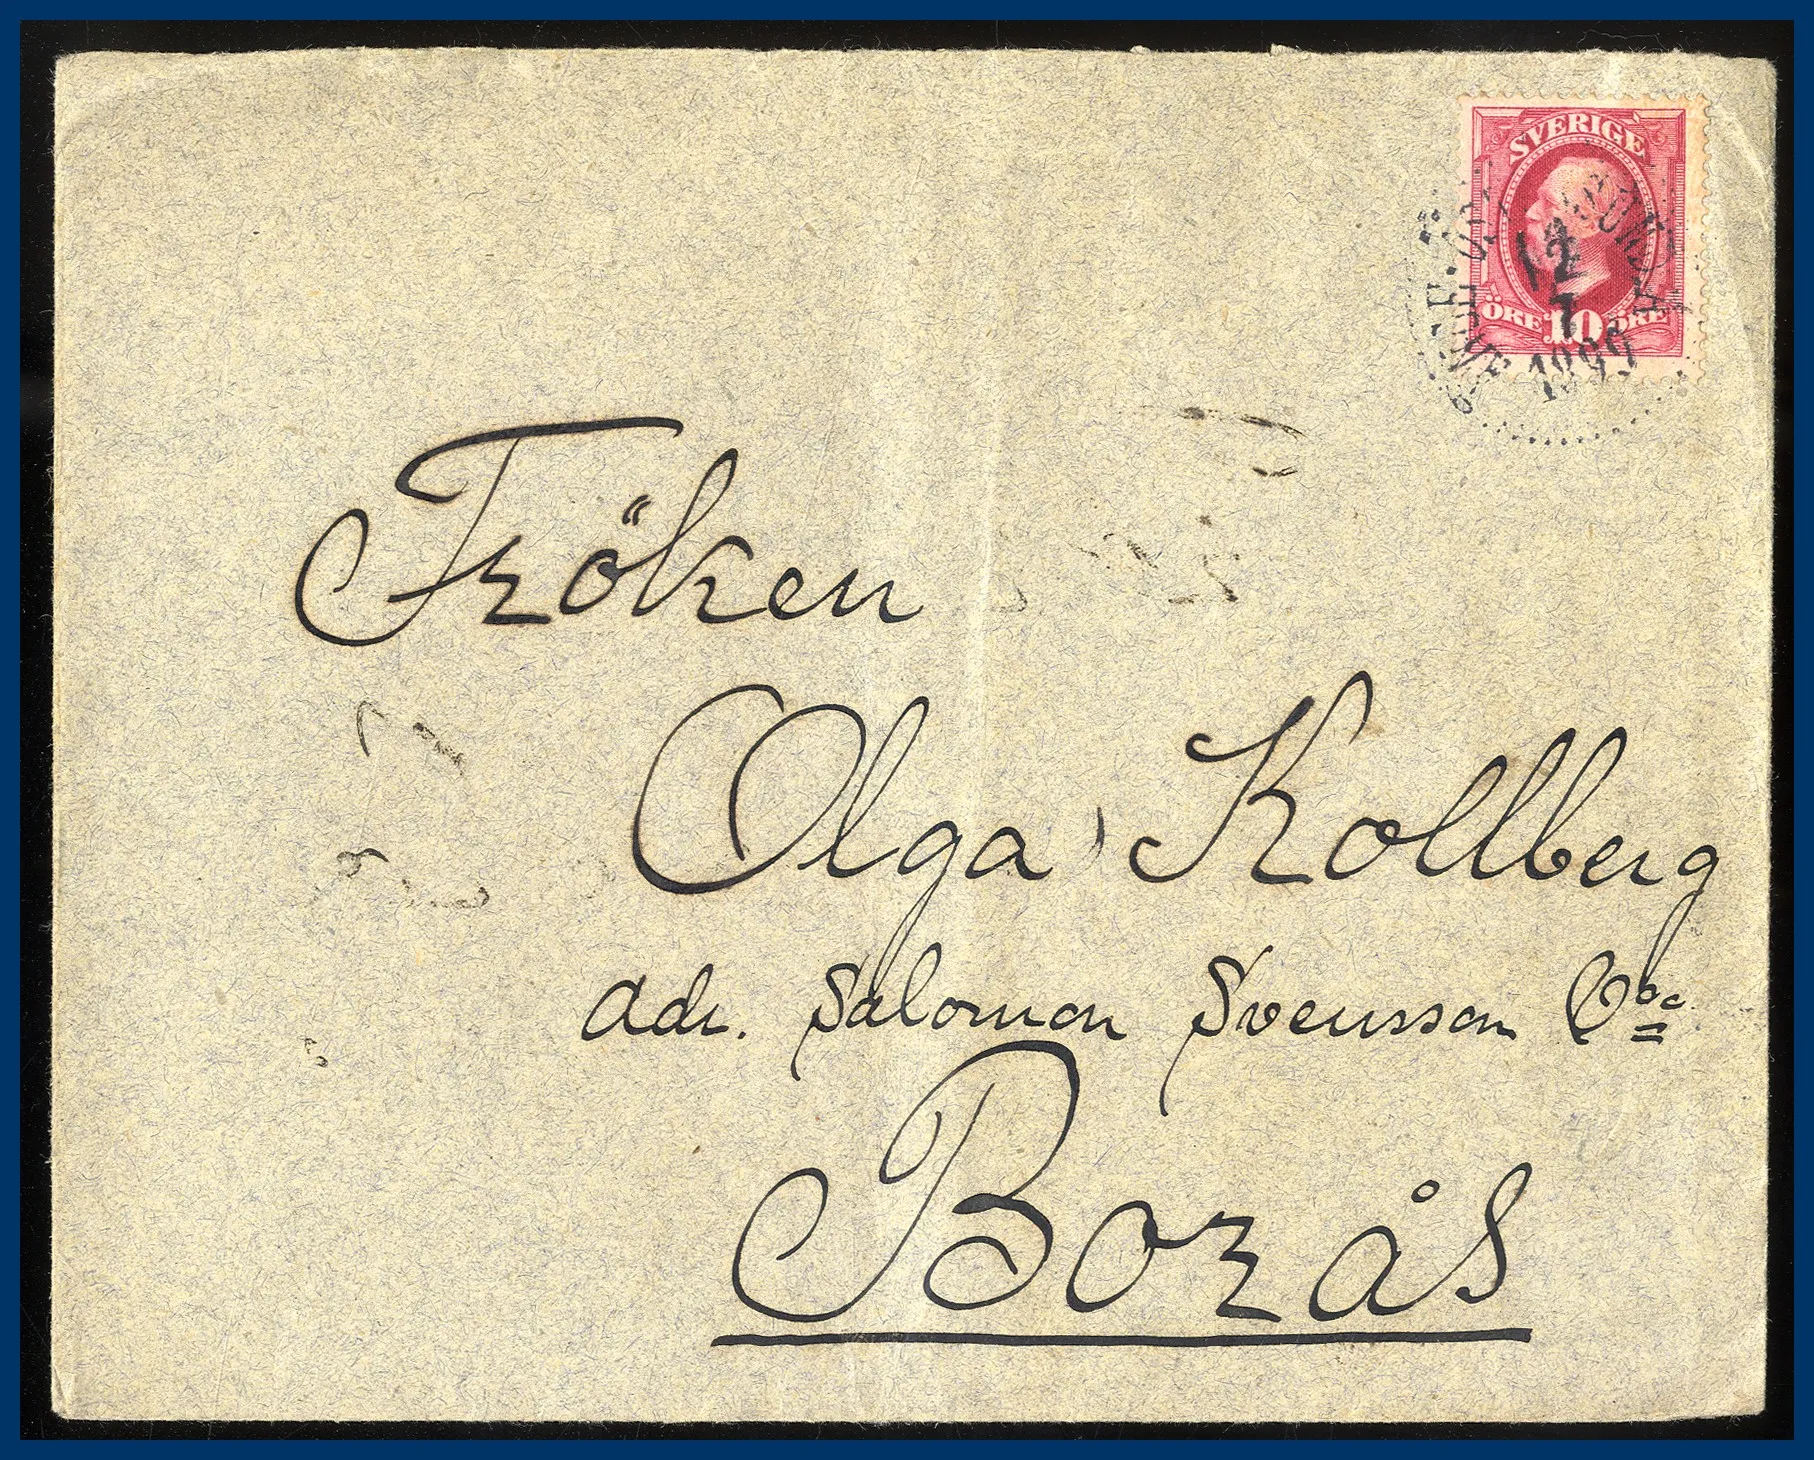 SVERIGE
12
7
1899
ÖRE 10 ÖRE
Fröken
Olga Kollberg
adr. Salomon Svensson
Borås